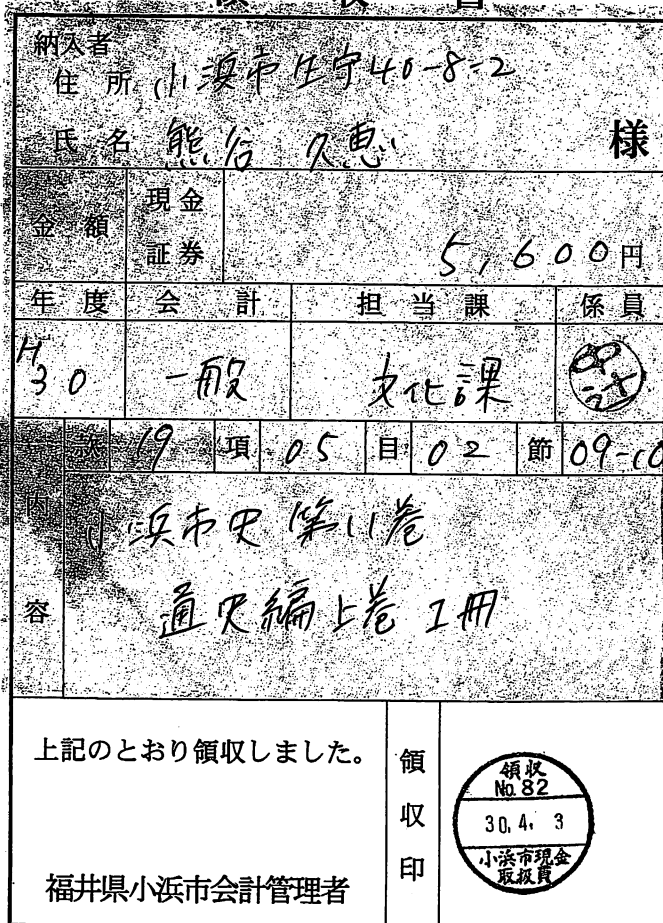 領収書
納入者
住所 小浜市生守40-8-2
氏名 熊谷 久恵 様
金額 現金 証券 5,600円
年度 会計 担当課 係員
H30 一般 文化課
款 19 項 05 目 02 節 09-10
内容
小浜市史 第11巻
通史編上巻 1冊
上記のとおり領収しました。
福井県小浜市会計管理者
領収印
領収
No.82
30.4.3
小浜市現金
取扱員